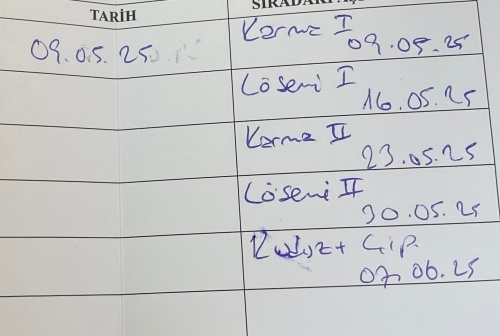 TARİH
09.05.25
Karma I
09.05.25
Lösemi I
16.05.25
Karma II
23.05.25
Lösemi II
30.05.25
Kuduz + Çip
07.06.25